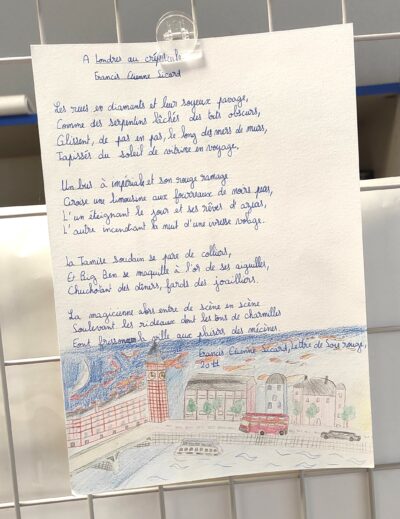 A Londres au crépuscule
Francis Etienne Sicard
Les rues en diamants et leur soyeux pavage,
Comme des serpentins lâchés des toits obscurs,
Glissent, de pas en pas, le long des mers de murs,
Tapissés du soleil de voiture en voyage.
Un bus à impériale et son rouge ramage
Croise une limousine aux fourreaux de noirs purs,
L'un éteignant le jour et ses rêves d'azurs,
L'autre incendiant la nuit d'une ivresse volage.
La Tamise soudain se pare de colliers,
Et Big Ben se maquille à l'or de ses aiguilles,
Chuchotant des dîners, fards des joailliers.
La magicienne alors entre de scène en scène
Soulevant les rideaux dont les tons de charmilles
Font frissonner la ville aux plaisirs des mécènes.
Francis Etienne Sicard, Lettre de Soie rouge,
2011